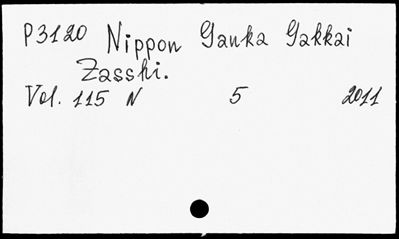 P3120 Nippon Ganka Gakkai
Zasshi.
Vol. 115 N 5 2011